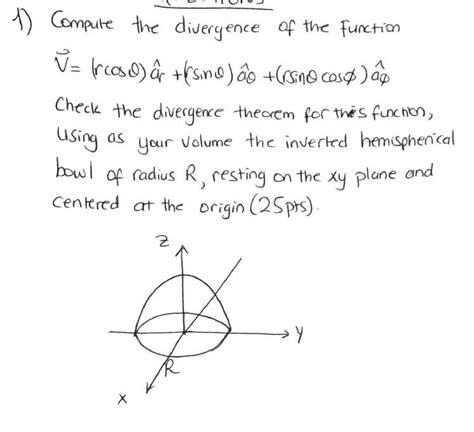 1) Compute the divergence of the function
V⃗= (rcosθ) âr + (rsinθ) âθ + (rsinθ cosϕ) âϕ
Check the divergence theorem for this function,
using as your volume the inverted hemispherical
bowl of radius R, resting on the xy plane and
centered at the origin (25pts).
z
y
R
x